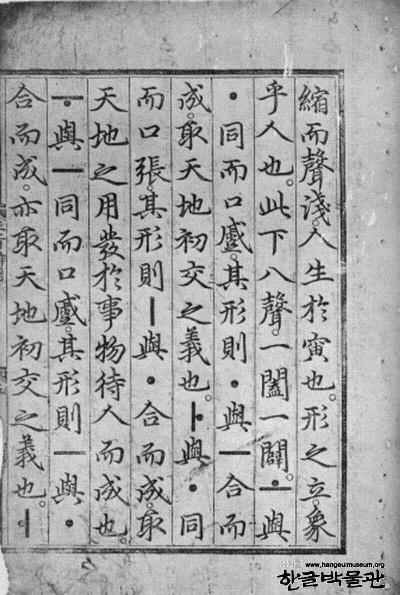 縮而聲淺。人生於寅也。形之立。象
乎人也。此下八聲。一闔一闢。ㅗ與
ㆍ同而口蹙。其形則ㆍ與ㅡ合而
成。取天地初交之義也。ㅏ與ㆍ同
而口張。其形則ㅣ與ㆍ合而成。取
天地之用發於事物待人而成也。
ㅜ與ㅡ同而口蹙。其形則ㅡ與ㆍ
合而成。亦取天地初交之義也。ㅓ
www.hangeulmuseum.org
한글박물관